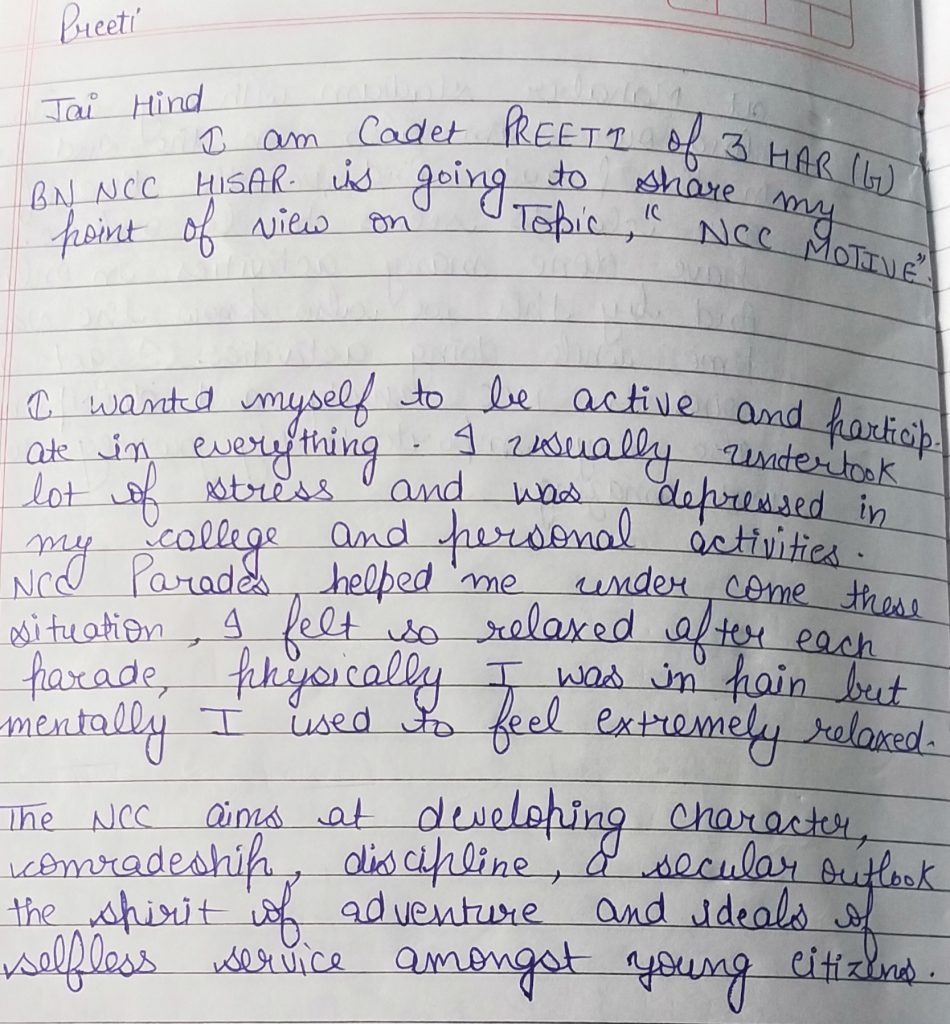 Preeti
Jai Hind
I am Cadet PREETI of 3 HAR (G)
BN NCC HISAR. is going to share my
point of view on Topic, "NCC MOTIVE".
I wantd myself to be active and particip-
ate in everything. I usually undertook
lot of stress and was depressed in
my college and personal activities.
NCC Parades helped me under come these
situation, I felt so relaxed after each
parade, physically I was in pain but
mentally I used to feel extremely relaxed.
The NCC aims at developing character,
comradeship, discipline, a secular outlook
the spirit of adventure and ideals of
selfless service amongst young citizens.